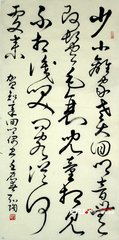 少小離家老大回鄉音無
改鬢毛衰兒童相見
不相識笑問客從何
處來
賀知章回鄉偶書